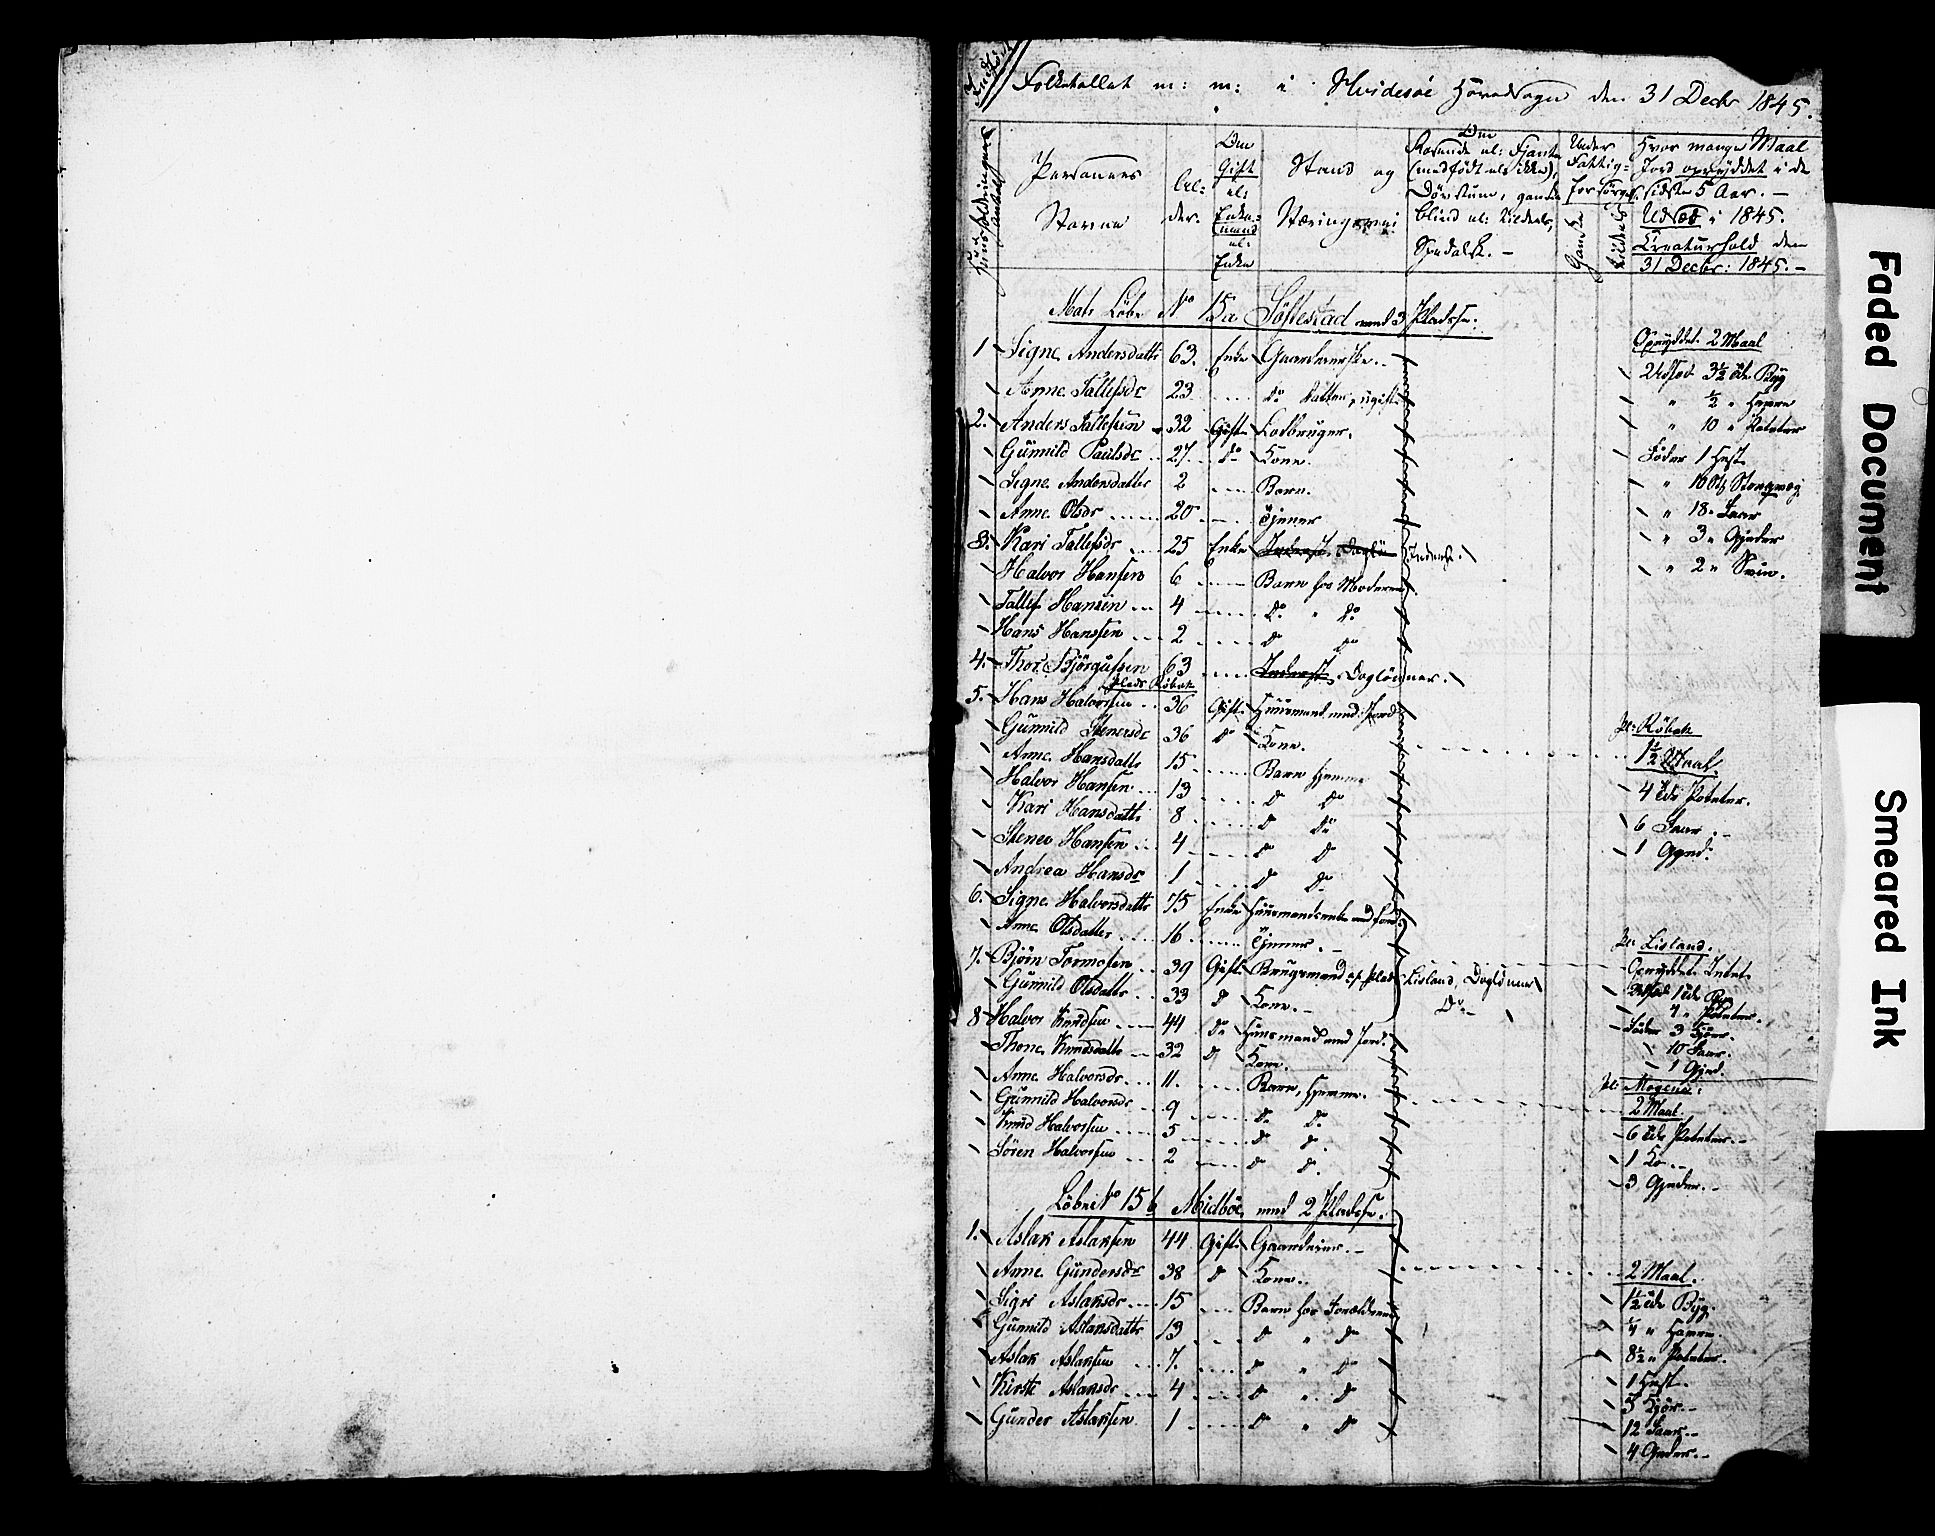 Folketallet m: m: i Hvidesöe Hovedsogn den 31 Decbr 1845.
Personernes Navne
Al- der.
Om Gift el: Enke- mand el: Enke
Stand og Næringsvei
Om
Dövstum,
blind
Spedalsk. -
Under Fattig- forsörgel.
Ganske
Hvor mange Maal Jord opryddet i de sidste 5 Aar. -
Udsæd i 1845.
Creaturhold den
31 Decbr: 1845. -
Matr Löbe No 15a Söftestad med 3 Pladse.
Opryddet 2 Maal
1 Signe Andersdatter 63. Enke Gaardeierske.
Udsæd 3½ Tde Byg
Anne Tallefsdr 23 do Datter, ugift
" ½ " Havre
2. Anders Tallefsen 32 Gift Lodbruger.
" 10 " Poteter
Gunnild Paulsdr 27 do Kone.
Föder 1 Hest
Signe Andersdatter 2 Barn.
Anne Olsdr 20 Tjener
" 18 " Faar
3. Kari Tallefsdr 25 Enke Inderst.
" 3 " Gjeder
Halvor Hansen 6 Barn hos Moderen
" 2 " Sviin.
Tallef Hansen 4 do " do
Hans Hanssen 2 do do
4. Thor Björgufsen 63 Inderst Daglönner.
Plads Röbek
5. Hans Halvorsen 36 Gift Huusmand med Jord
Gunnild Stenersdr 36 do Kone.
Pl: Röbek
1½ Maal.
Anne Hansdatter 15 Barn hjemme
Halvor Hansen 13 do do
4 Tde Poteter.
Kari Hansdatter 8 do do
6 Faar -
Stener Hansen 4 do do
1 Gjed.
Andrea Hansdr 1 do do
6. Signe Halvorsdatter 75 Enke Huusmandsenke med Jord.
Anne Olsdatter 16 Tjener. -
Pl: Lisland.
7. Björn Tormosen 39 Gift Brugsmand af Plads Lisland, Daglönner
Opryddet Intet
Gunnild Olsdatter 33 do Kone. - Do -
Udsæd 1 Tde Byg
4 " Poteter.
8 Halvor Knudsen 44 do Huusmand med Jord.
Föder 3 Kjör.
Thone Knudsdatter 32 do Kone.
10 Faar.
1 Gjed.
Anne Halvorsdr 11. Barn, hjemme.
Pl: Mogene:
Gunnild Halvorsdr 9 do do
2 Maal.
Knud Halvorsen 5 do do
6 Tde Poteter. -
Sören Halvorsen 2 do do
1 Ko. -
3 Gjeder. -
Löbe No 15 b Midböe med 2 Pladse.
1. Aslak Aslaksen 44 Gift Gaardeier. -
Anne Gundersdr 38 do Kone.
2 Maal.
Sigri Aslaksdr 15 Barn hos Forældrene
1½ Tde Byg.
Gunnild Aslaksdatter 13 do " do
¼ " Havre.
Aslak Aslaksen 7. do " do
8½ " Poteter.
Kirste Aslaksdr 4 do " do
1 Hest.
5 Kjör. -
Gunder Aslaksen 1 do " do
12 Faar. -
4 Gjeder. -
Faded Document
Smeared Ink